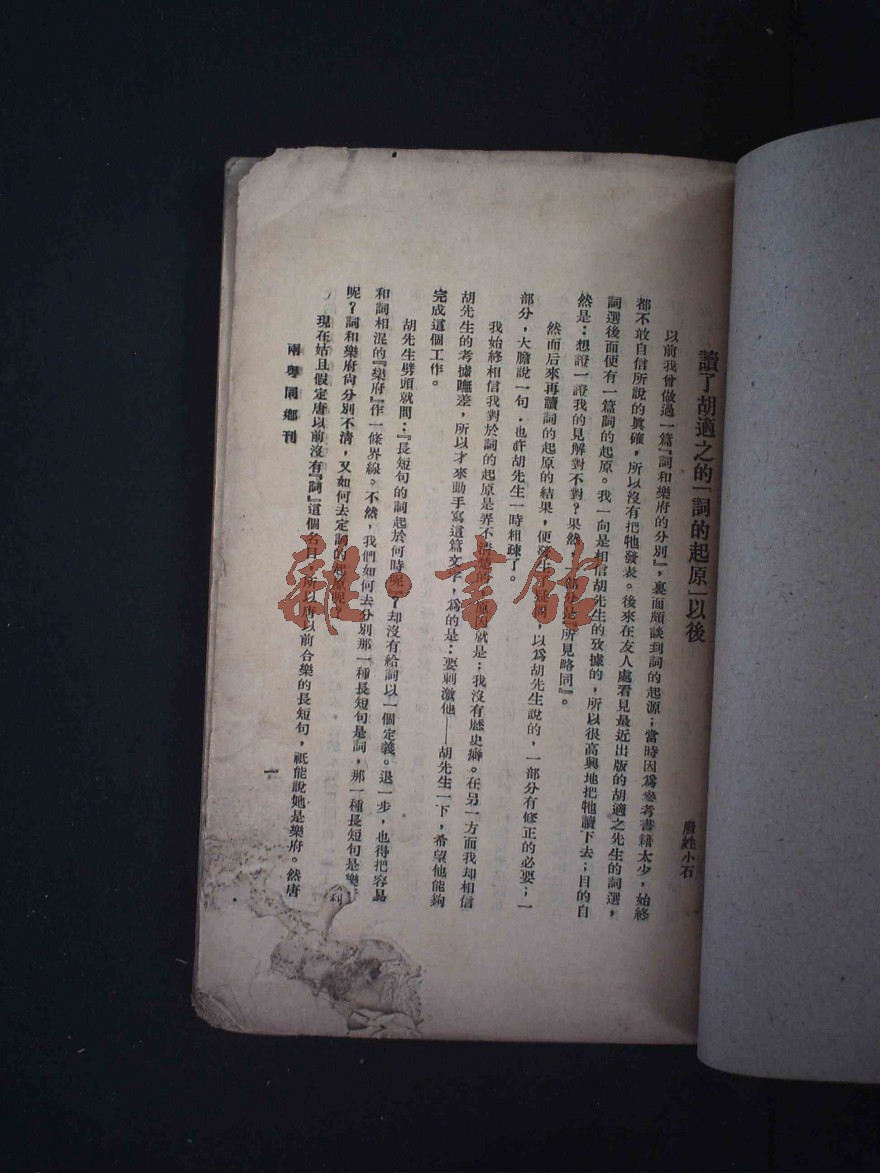 讀了胡適之的「詞的起原」以後
廢姓小石
以前我曾做過一篇『詞和樂府的分別』，裏面頗談到詞的起源；當時因爲參考書籍太少，始終
都不敢自信所說的眞確，所以沒有把牠發表。後來在友人處看見最近出版的胡適之先生的詞選，
詞選後面便有一篇詞的起原。我一向是相信胡先生的攷據的，所以很高興地把牠讀下去；目的自
然是：想證一證我的見解對不對？果然，部分是『所見略同』。
然而后來再讀詞的起原的結果，便發生了疑問，以爲胡先生說的，一部分有修正的必要；一
部分，大膽說一句，也許胡先生一時粗疎了。
我始終相信我對於詞的起原是弄不清楚的，原因就是：我沒有歷史癖。在另一方面我却相信
胡先生的考據嘸差，所以才來動手寫這篇文字，爲的是：要刺激他——胡先生一下，希望他能夠
完成這個工作。
胡先生劈頭就問：『長短句的詞起於何時呢』？却沒有給詞以一個定義。退一步，也得把容易
和詞相混的『樂府』作一條界線。不然，我們如何去分別那一種長短句是詞，那一種長短句是樂
呢？詞和樂府尙分別不淸，又如何去定詞的起原呢？
現在姑且假定唐以前沒有『詞』這個名目，所以唐以前合樂的長短句，祇能說她是樂府。然唐
兩粵同鄉刊
一
雜·書館